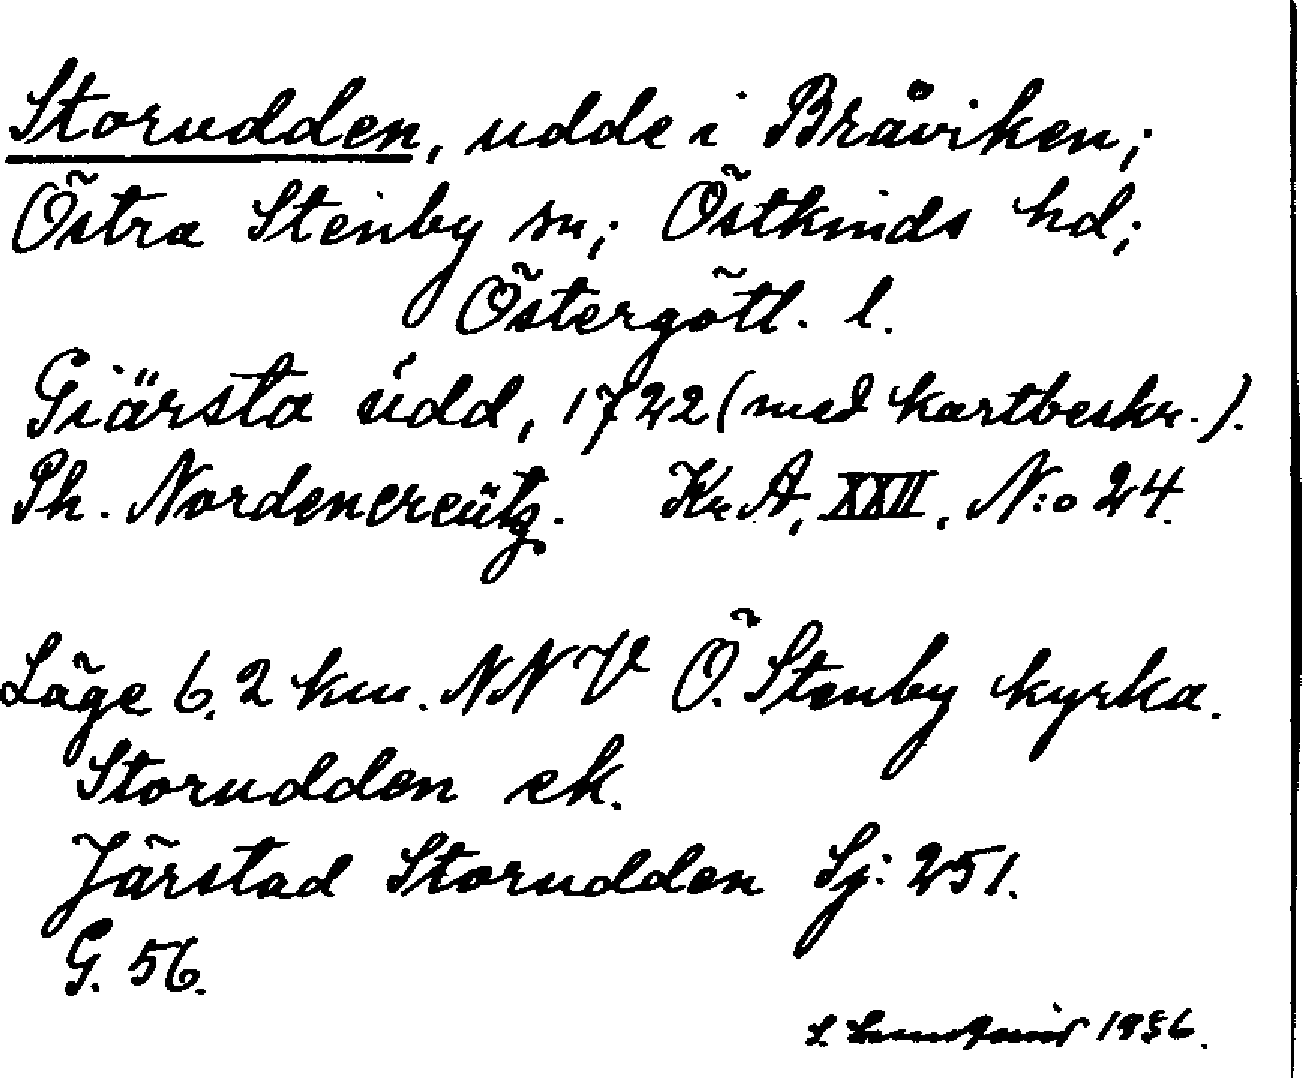 Storudden, udde i Bråviken;
Östra Stenby sn; Östkinds hd;
Östergötl. l.
Giärsta údd, 1722 (med kartbeskr.).
Ph. Nordencreütz. Kr A, XXII, N:o 24.
Läge 6,2 km. NNV Ö. Stenby kyrka.
Storudden ek.
Järstad Storudden Sj: 251.
G. 56.
1936.